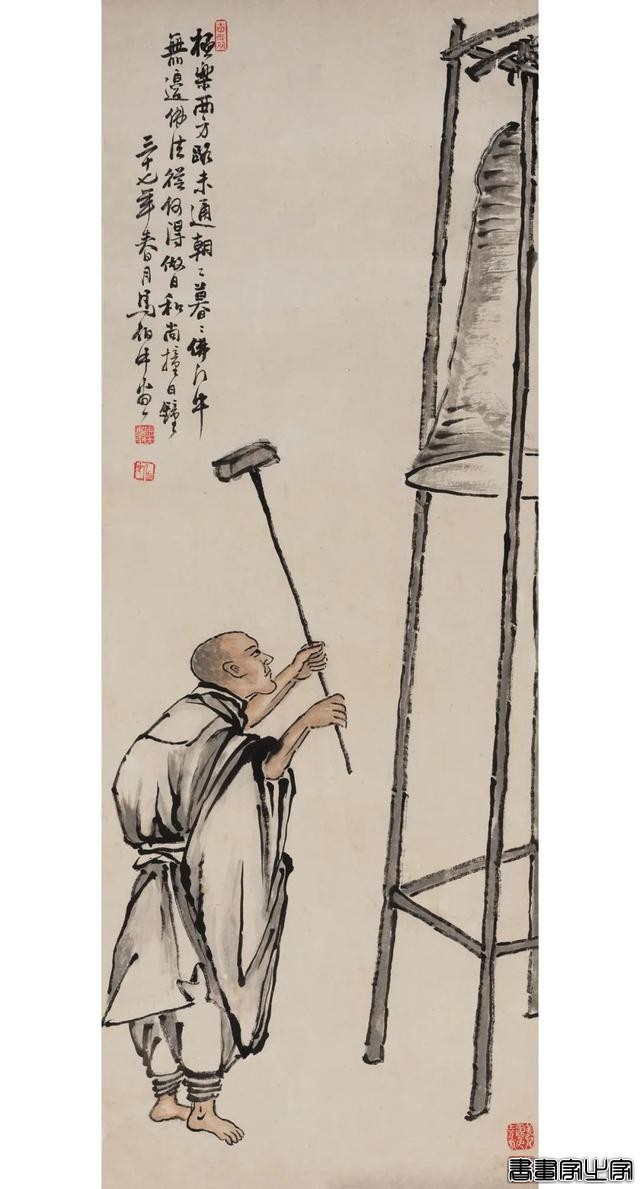 極樂西方路未通朝〻暮〻佛
無邊佛法從何得做日和尚撞日鐘
三十七年春月馬伯畫
書畫家之家